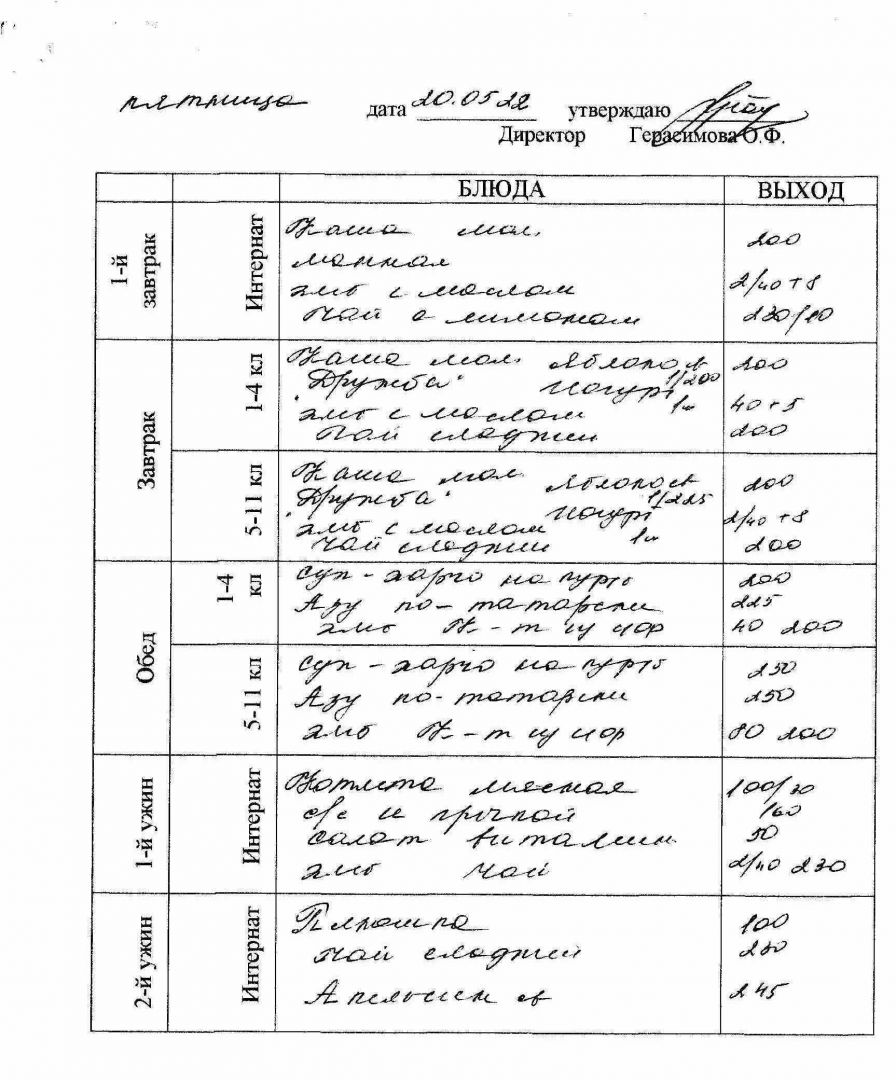 пятница дата 20.05 22 утверждаю
Директор Герасимова О.Ф.
БЛЮДА ВЫХОД
1-й завтрак Интернат
Каша мол. 200
манная
хлеб с маслом 2/40+8
Чай с лимоном 230/10
Завтрак 1-4 кл
Каша мол. Яблоко св 200
"Дружба" Йогурт 1/200
хлеб с маслом 1ш 40+5
Чай сладкий 200
5-11 кл
Каша мол. Яблоко св 200
"Дружба" Йогурт 1/225
хлеб с маслом 1ш 2/40+8
Чай сладкий 200
Обед 1-4 кл
Суп-харчо на курб 200
Азу по-татарски 225
хлеб К-т из кур 40 200
5-11 кл
Суп-харчо на курб 250
Азу по-татарски 250
хлеб К-т из кур 80 200
1-й ужин Интернат
Котлета мясная 100/30
с/с и гречкой 160
Салат витамин 50
хлеб Чай 2/40 230
2-й ужин Интернат
100
Чай сладкий 230
Апельсин св 245